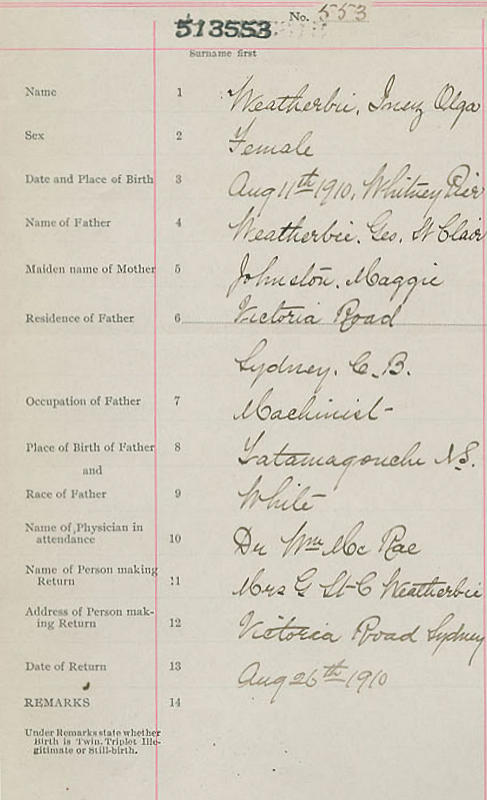 No. 553
513553
Surname first
Name 1 Weatherbie, Inez Olga
Sex 2 Female
Date and Place of Birth 3 Aug 11th 1910, Whitney Pier
Name of Father 4 Weatherbie, Geo. St Clair
Maiden name of Mother 5 Johnston, Maggie
Residence of Father 6 Victoria Road
Sydney, C.B.
Occupation of Father 7 Machinist
Place of Birth of Father 8 Tatamagouche N.S.
and
Race of Father 9 White
Name of Physician in
attendance 10 Dr Wm Mc Rae
Name of Person making
Return 11 Mrs G St C Weatherbie
Address of Person mak-
ing Return 12 Victoria Road Sydney
Date of Return 13 Aug 26th 1910
REMARKS 14
Under Remarks state whether
Birth is Twin, Triplet Ille-
gitimate or Still-birth.